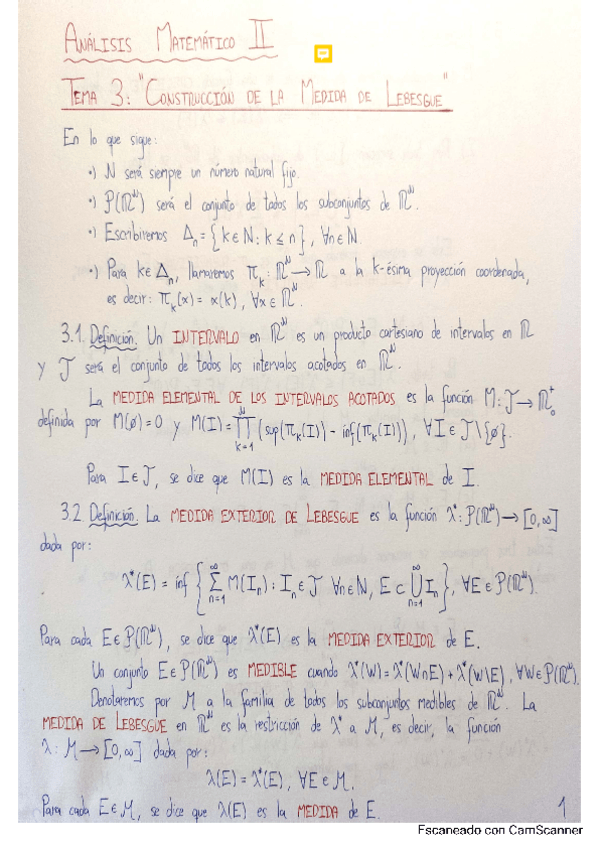 ANÁLISIS MATEMÁTICO II
TEMA 3: "CONSTRUCCIÓN DE LA MEDIDA DE LEBESGUE"
En lo que sigue:
·) N será siempre un número natural fijo.
·) P(ℝᴺ) será el conjunto de todos los subconjuntos de ℝᴺ.
·) Escribiremos Δₙ = {k ∈ ℕ : k ≤ n}, ∀n ∈ ℕ.
·) Para k ∈ Δₙ, llamaremos πₖ : ℝᴺ → ℝ a la k-ésima proyección coordenada,
es decir: πₖ(x) = x(k), ∀x ∈ ℝᴺ.
3.1. Definición. Un INTERVALO en ℝᴺ es un producto cartesiano de intervalos en ℝ
y J será el conjunto de todos los intervalos acotados en ℝᴺ.
La MEDIDA ELEMENTAL DE LOS INTERVALOS ACOTADOS es la función M: J → ℝ₀⁺
definida por M(ø) = 0 y M(I) = ∏ₖ₌₁ᴺ (sup(πₖ(I)) - inf(πₖ(I))), ∀I ∈ J\{ø}.
Para I ∈ J, se dice que M(I) es la MEDIDA ELEMENTAL de I.
3.2. Definición. La MEDIDA EXTERIOR DE LEBESGUE es la función λ* : P(ℝᴺ) → [0,∞]
dada por:
λ*(E) = inf { ∑ₙ₌₁^∞ M(Iₙ) : Iₙ ∈ J ∀n ∈ ℕ, E ⊂ ⋃ₙ₌₁^∞ Iₙ }, ∀E ∈ P(ℝᴺ).
Para cada E ∈ P(ℝᴺ), se dice que λ*(E) es la MEDIDA EXTERIOR de E.
Un conjunto E ∈ P(ℝᴺ) es MEDIBLE cuando λ*(W) = λ*(W∩E) + λ*(W\E), ∀W ∈ P(ℝᴺ).
Denotaremos por M a la familia de todos los subconjuntos medibles de ℝᴺ. La
MEDIDA DE LEBESGUE en ℝᴺ es la restricción de λ* a M, es decir, la función
λ : M → [0,∞] dada por:
λ(E) = λ*(E), ∀E ∈ M.
Para cada E ∈ M, se dice que λ(E) es la MEDIDA de E.
1
Escaneado con CamScanner